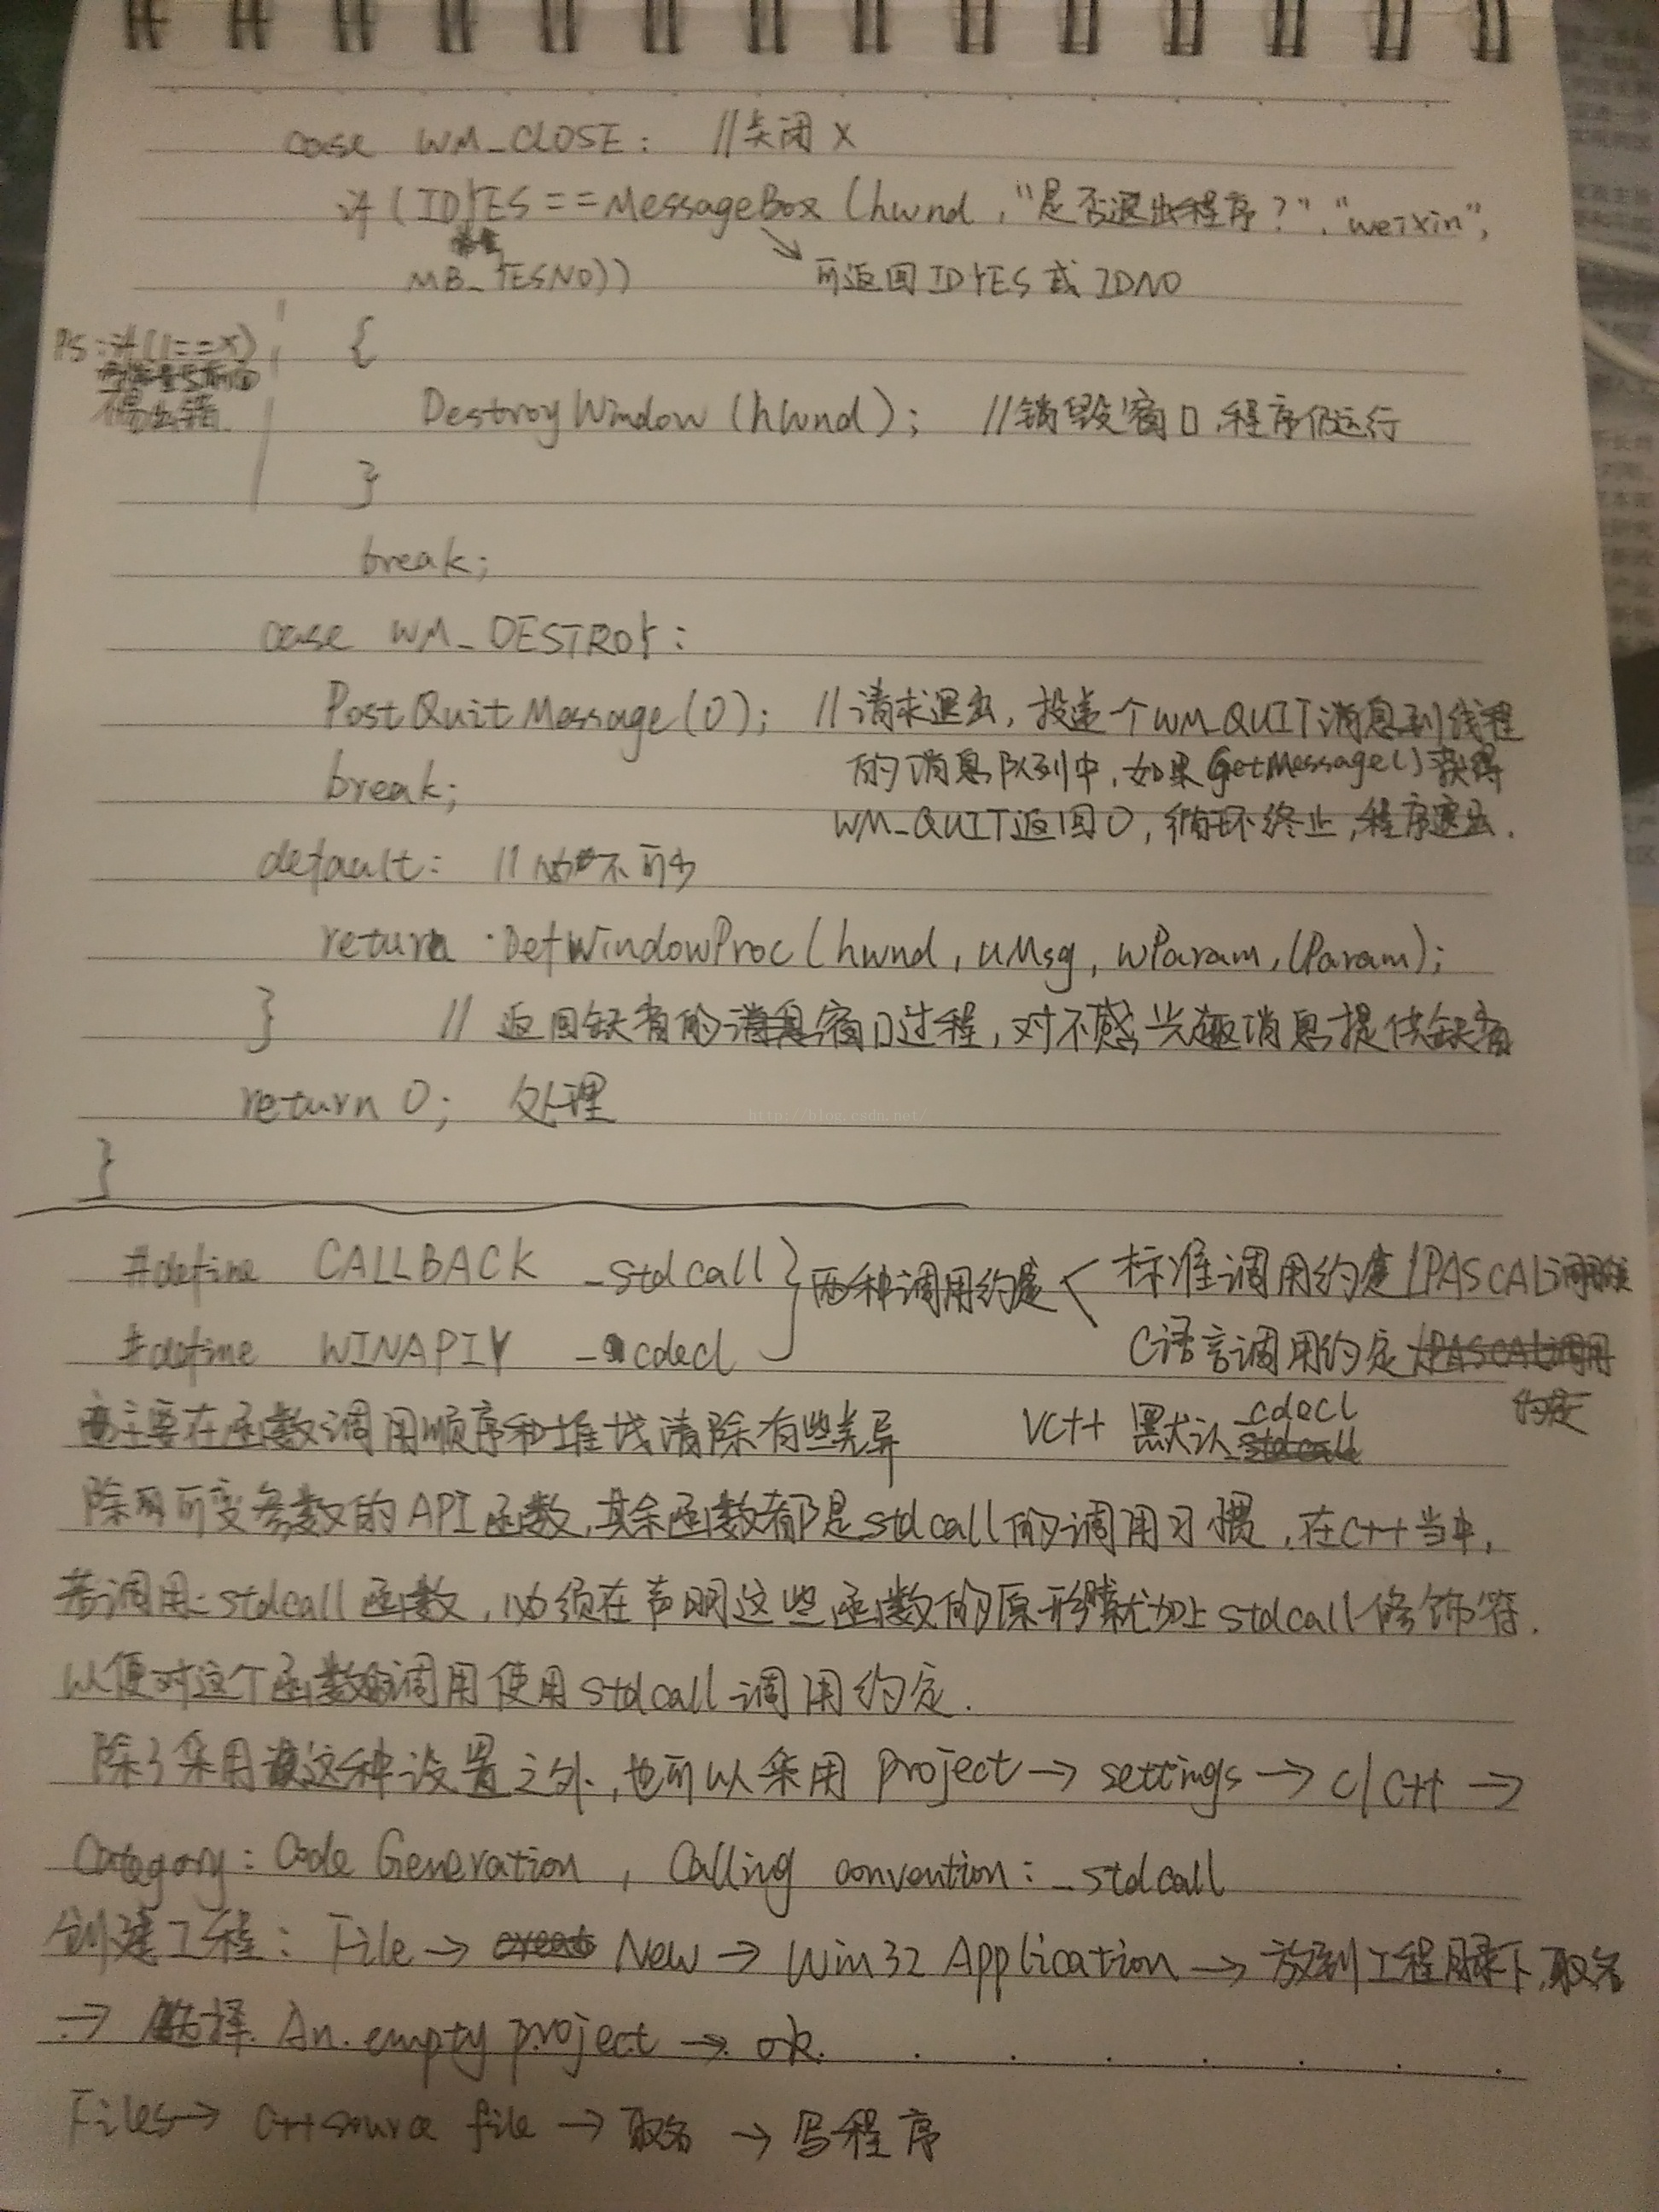 case WM_CLOSE: //关闭X
if (IDYES == MessageBox (hwnd, "是否退出程序?", "weixin",
MB_YESNO))
可返回IDYES或IDNO
PS:if(1==x)
{
DestroyWindow (hwnd); //销毁窗口,程序仍运行
}
break;
case WM_DESTROY:
PostQuitMessage(0); //请求退出,投递个WM_QUIT消息到线程
的消息队列中,如果GetMessage()获得
break;
WM_QUIT返回0,循环终止,程序退出.
default: //必不可少
return DefWindowProc(hwnd, uMsg, wParam, lParam);
} // 返回缺省的窗口过程,对不感兴趣消息提供缺省
return 0; 处理
http://blog.csdn.net/
}
#define CALLBACK _stdcall } 两种调用约定 < 标准调用约定/PASCAL调用
#define WINAPIV _cdecl C语言调用约定
约定
主要在函数调用顺序和堆栈清除有些差异 VC++ 默认_cdecl
除可变参数的API函数,其余函数都是stdcall的调用习惯,在C++当中,
若调用_stdcall函数,必须在声明这些函数的原形就加上stdcall修饰符.
以便对这个函数的调用使用stdcall调用约定.
除了采用这种设置之外,也可以采用project→settings→C/C++→
Category: Code Generation, Calling convention: _stdcall
创建工程: File→ New→Win32 Application→放到工程目录下,取名
→选择 An empty project→ok.
Files→C++ source file→取名→写程序